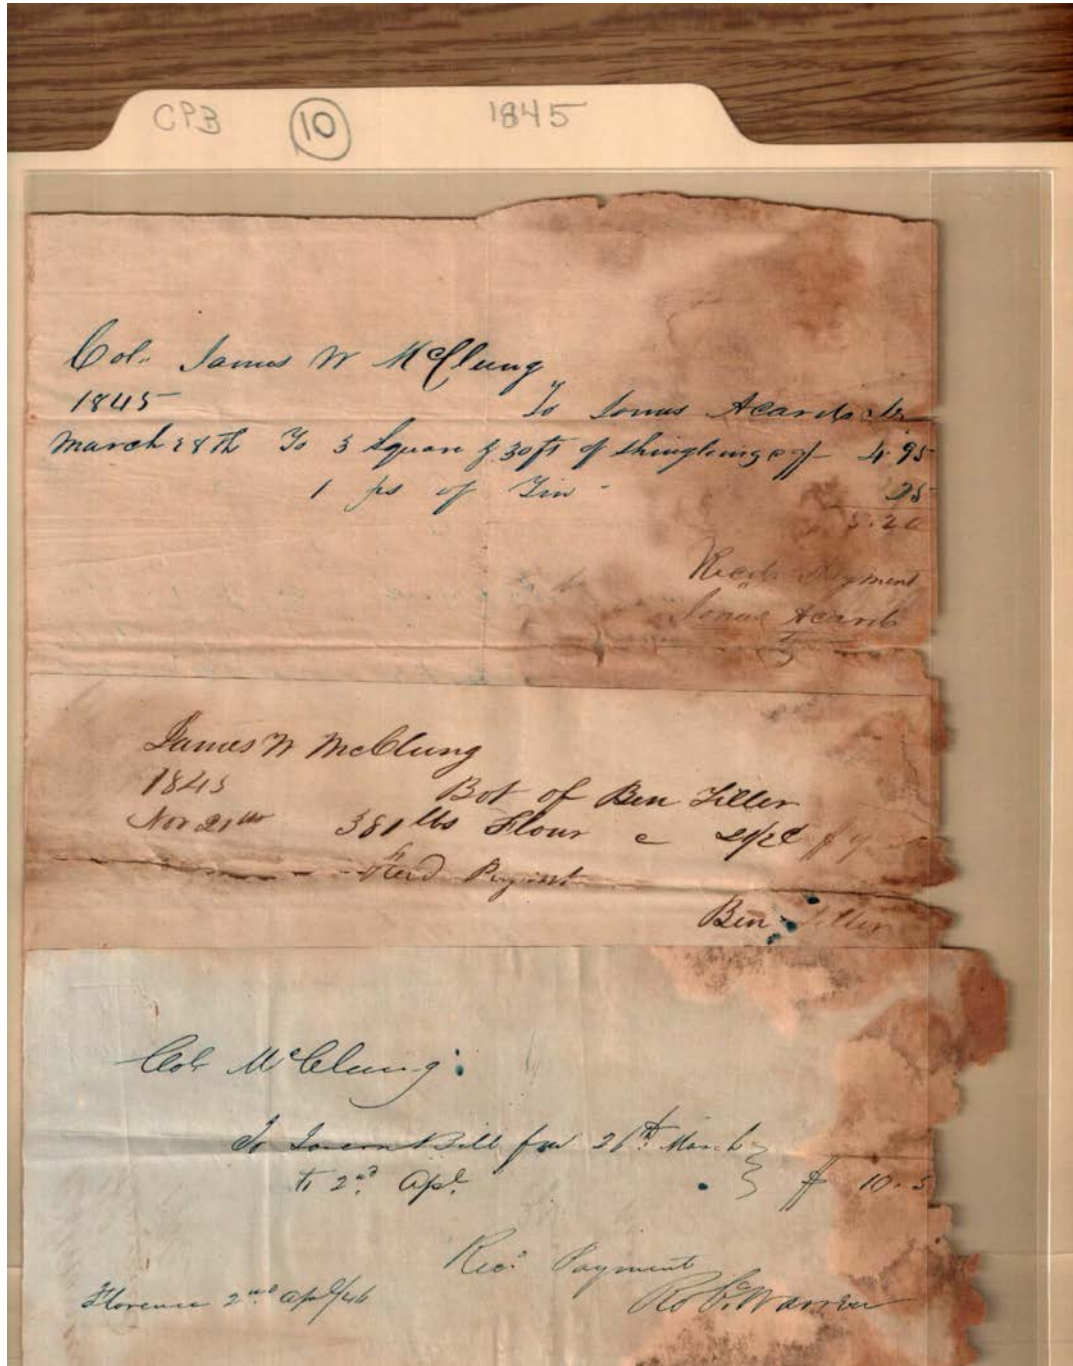 CPB 10 1845
Col. James W McClung
1845 To Jonus Acards Dr
March 28th To 3 Square & 30 ft of Shingleing 4.95
1 ps of Tin - 25
5.20
Recd Payment
Jonus Acards
James W McClung
1845 Bot of Ben Tiller
Nov 21st 381 lbs Flour
Recd Paymnt
Ben Tiller
Col McClung
To Tavern Bill for 26th March
to 2nd Apl. $ 10.5
Recd Payment
Florence 2nd Apl/46 Warren